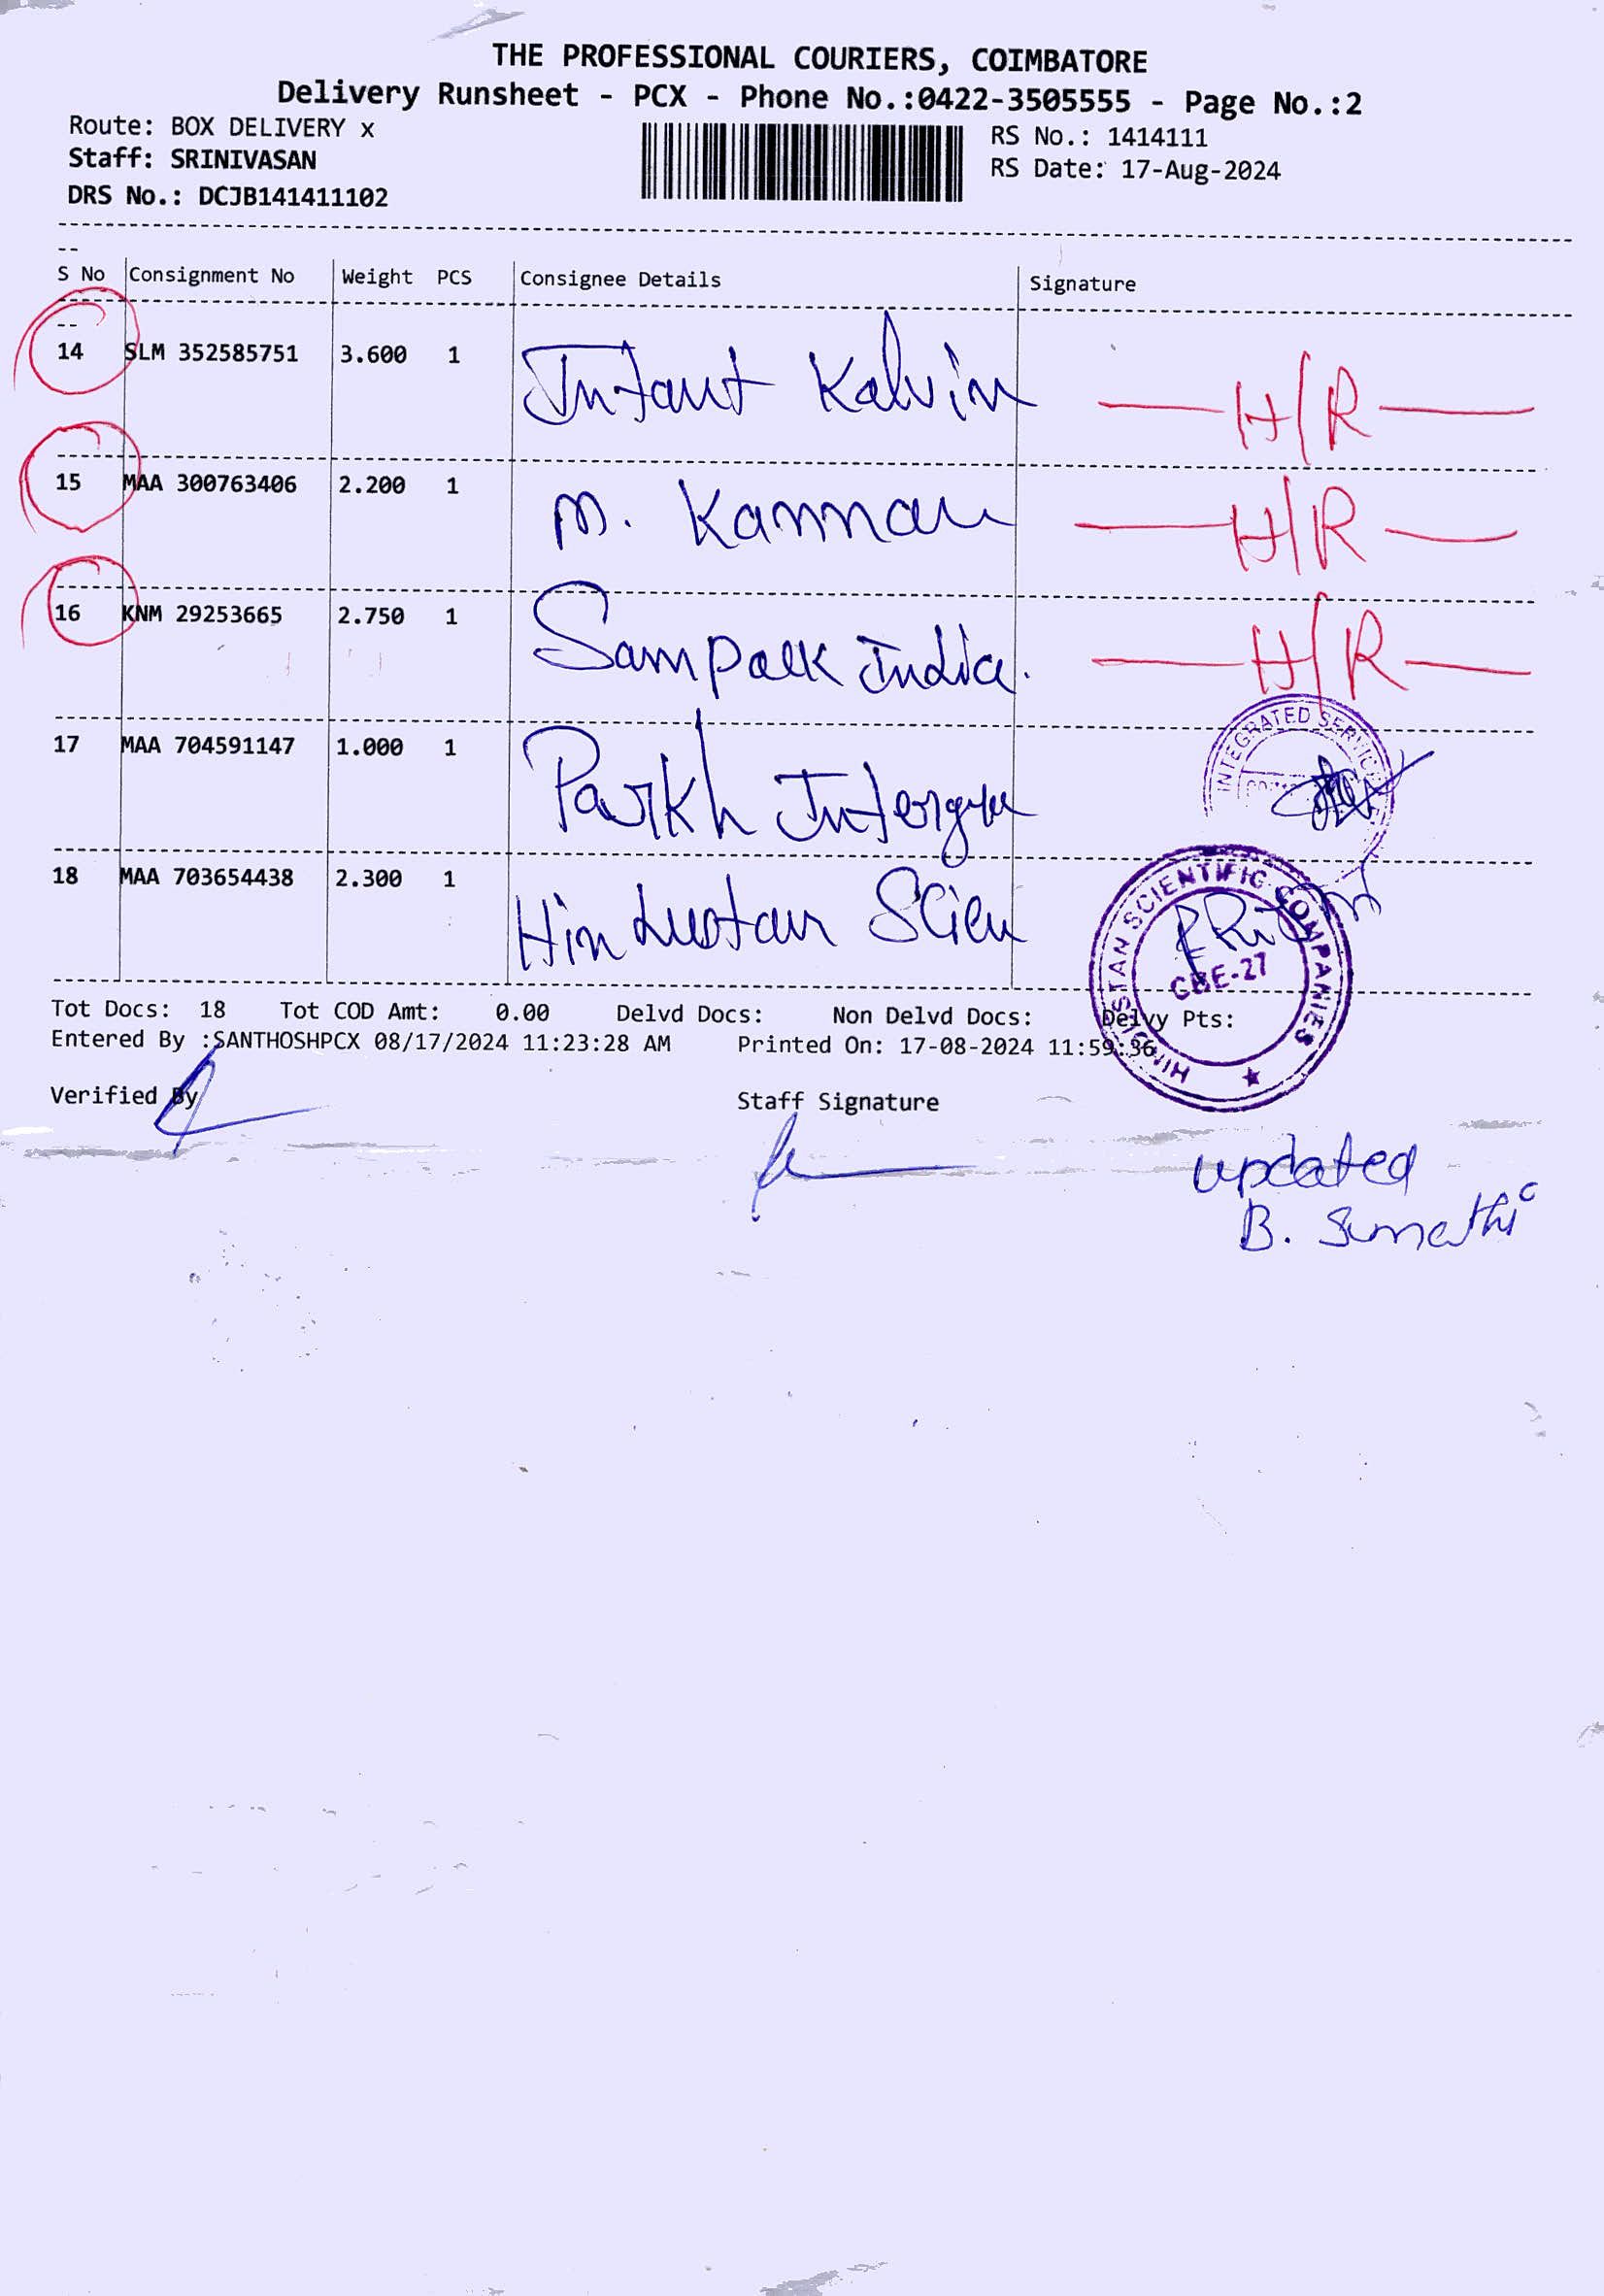 THE PROFESSIONAL COURIERS, COIMBATORE
Delivery Runsheet - PCX - Phone No.:0422-3505555 - Page No.:2
Route: BOX DELIVERY x
RS No.: 1414111
Staff: SRINIVASAN
RS Date: 17-Aug-2024
DRS No.: DCJB141411102
S No Consignment No Weight PCS Consignee Details Signature
14 SLM 352585751 3.600 1 Infant Kalvin H/R
15 MAA 300763406 2.200 1 M. Kannan H/R
16 KNM 29253665 2.750 1 Sampark India. H/R
17 MAA 704591147 1.000 1 Parkh INTEGRATED
18 MAA 703654438 2.300 1 Hindustan Scien
HINDUSTAN SCIENTIFIC COMPANIES
CBE-27
Tot Docs: 18 Tot COD Amt: 0.00 Delvd Docs: Non Delvd Docs: Delvy Pts:
Entered By :SANTHOSHPCX 08/17/2024 11:23:28 AM Printed On: 17-08-2024 11:59:36
Verified By Staff Signature
updated
B. Sumathi